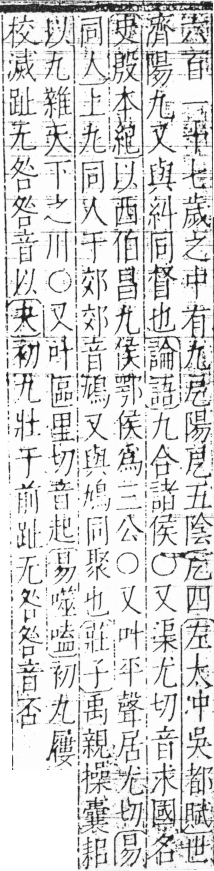 六百一十七歲之中有九戹陽戹五陰戹四左太冲吳都賦世
濟陽九又與糾同督也論語九合諸侯〇又渠尤切音求國名
史殷本紀以西伯昌九侯鄂侯爲三公〇又叶平聲居尤切易
同人上九同人于郊郊音鳩又與鳩同聚也莊子禹親操橐耜
以九雜天下之川〇又叶區里切音起易噬嗑初九屨
校滅趾无咎咎音以夬初九壯于前趾无咎咎音否